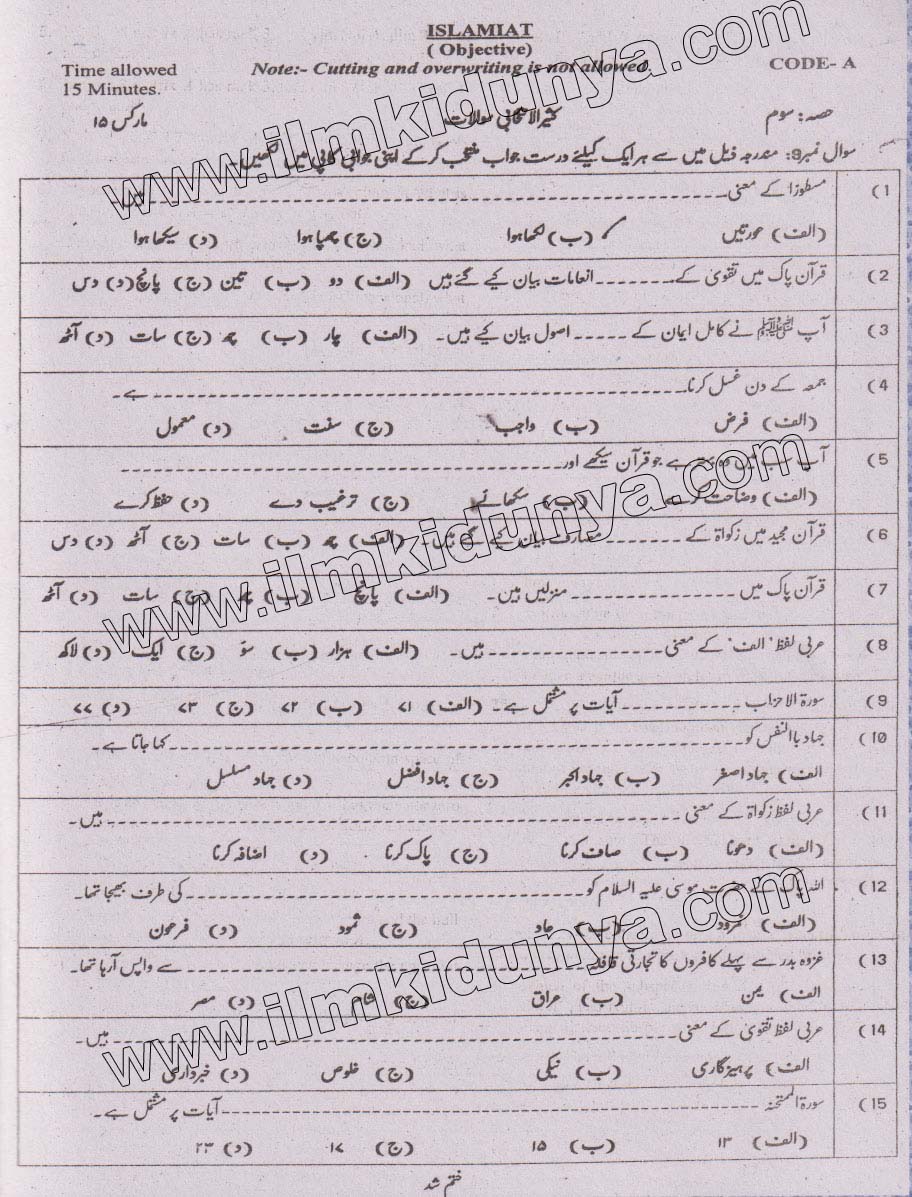 ISLAMIAT
( Objective)
Time allowed
15 Minutes.
Note:- Cutting and overwriting is not allowed.
CODE- A
حصہ: سوم
کثیر الانتخابی سوالات
مارکس ۱۵
سوال نمبر9: مندرجہ ذیل میں سے ہر ایک کیلئے درست جواب منتخب کر کے اپنی جوابی کاپی میں لکھیں۔
1) مسطورًا کے معنی ---------- ہیں۔
(الف) عورتیں (ب) لکھا ہوا (ج) چھپا ہوا (د) سیکھا ہوا
2) قرآن پاک میں تقویٰ کے -------- انعامات بیان کیے گئے ہیں (الف) دو (ب) تین (ج) پانچ (د) دس
3) آپ ﷺ نے کامل ایمان کے ----- اصول بیان کیے ہیں۔ (الف) چار (ب) چھ (ج) سات (د) آٹھ
4) جمعہ کے دن غسل کرنا ---------- ہے۔
(الف) فرض (ب) واجب (ج) سنت (د) معمول
5) آپ سب میں وہ بہتر ہے جو قرآن سیکھے اور ----------
(الف) وضاحت کرے (ب) سکھائے (ج) ترغیب دے (د) حفظ کرے
6) قرآن مجید میں زکواة کے -------- مصارف بیان کیے گئے ہیں۔ (الف) چھ (ب) سات (ج) آٹھ (د) دس
7) قرآن پاک میں ---------- منزلیں ہیں۔ (الف) پانچ (ب) چھ (ج) سات (د) آٹھ
8) عربی لفظ "الف" کے معنی ---------- ہیں۔ (الف) ہزار (ب) سوَ (ج) ایک (د) لاکھ
9) سورة الاحزاب ---------- آیات پر مشتمل ہے۔ (الف) ۷۱ (ب) ۷۲ (ج) ۷۳ (د) ۷۷
10) جہاد باالنفس کو ---------- کہا جاتا ہے۔
الف) جہاد اصغر (ب) جہاد اکبر (ج) جہاد افضل (د) جہاد مسلسل
11) عربی لفظ زکواة کے معنی ---------- ہیں۔
(الف) دھونا (ب) صاف کرنا (ج) پاک کرنا (د) اضافہ کرنا
12) اللہ پاک نے حضرت موسی علیہ السلام کو ---------- کی طرف بھیجا تھا۔
(الف) نمرود (ب) عاد (ج) ثمود (د) فرعون
13) غزوہ بدر سے پہلے کافروں کا تجارتی قافلہ ---------- سے واپس آرہا تھا۔
الف) یمن (ب) عراق (ج) شام (د) مصر
14) عربی لفظ تقویٰ کے معنی ---------- ہیں۔
الف) پرہیزگاری (ب) نیکی (ج) خلوص (د) خبرداری
15) سورة الممتحنہ ---------- آیات پر مشتمل ہے۔
(الف) ۱۳ (ب) ۱۵ (ج) ۱۷ (د) ۲۳
ختم شد
www.ilmkidunya.com
www.ilmkidunya.com
www.ilmkidunya.com